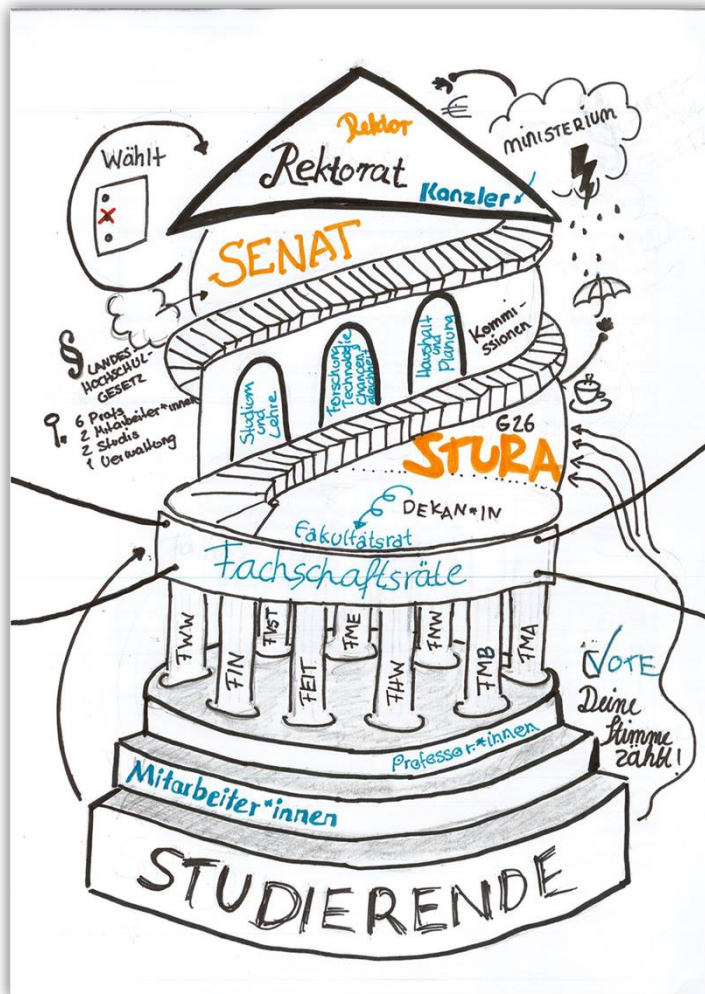 Rektor
Rektorat
Kanzler
€
MINISTERIUM
Wählt
SENAT
§ LANDES
HOCHSCHUL-
GESETZ
6 Profs
2 Mitarbeiter*innen
2 Studis
1 Verwaltung
Studium
und
Lehre
Forschung
Technologie
Chancen
gleichheit
Haushalt
und
Planung
Kommi-
ssionen
G26
STURA
DEKAN*IN
Fakultätsrat
Fachschaftsräte
FWW
FIN
FVST
FEIT
FME
FHW
FNW
FMB
FMA
VOTE
Deine
Stimme
zählt!
Professor*innen
Mitarbeiter*innen
STUDIERENDE